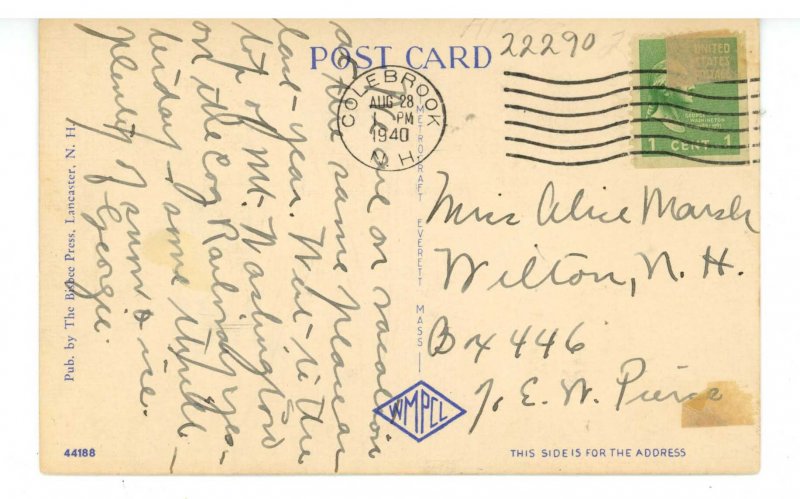 POST CARD
22290
COLEBROOK
AUG 28
1 PM
1940
N. H.
UNITED
STATES
POSTAGE
GEORGE
WASHINGTON
1 CENT 1
We are on vacation
at the same place as
last year. Went to the
top of Mt. Washington
on the Cog Railway yes-
terday some thrill —
plenty of snow & ice.
Georgie.
METROCRAFT EVERETT MASS
Miss Alice Marsh
Wilton, N. H.
Box 446
℅ E. W. Pierce
WMPCL
Pub. by The Bisbee Press, Lancaster, N. H.
44188
THIS SIDE IS FOR THE ADDRESS